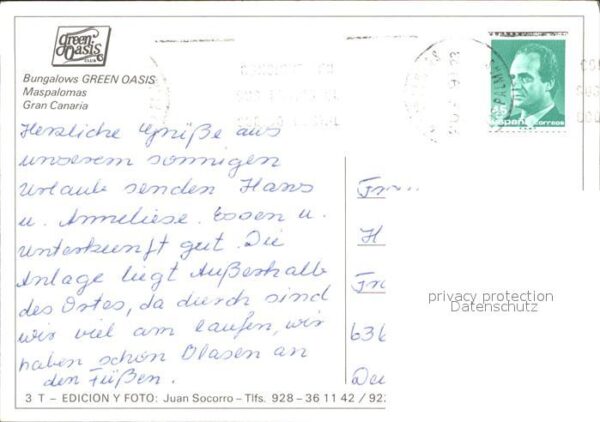 Green
Oasis
CLUB
Bungalows GREEN OASIS
Maspalomas
Gran Canaria
Herzliche Grüße aus
unserem sonnigen
Urlaub senden Hans
u. Anneliese. Essen u.
Unterkunft gut. Die
Anlage liegt Außerhalb
des Ortes, da durch sind
wir viel am laufen, wir
haben schon Blasen an
den Füßen.
45
España correos
H
636
privacy protection
Datenschutz
3 T – EDICION Y FOTO: Juan Socorro – Tlfs. 928 – 36 11 42 / 922